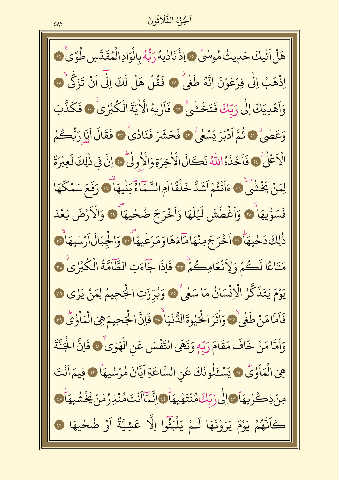 اَلْجُزْءُ الثَّلَاثُونَ
هَلْ اَتٰيكَ حَد۪يثُ مُوسٰى اِذْ نَادٰيهُ رَبُّهُ بِالْوَادِ الْمُقَدَّسِ طُوًى
اِذْهَبْ اِلٰى فِرْعَوْنَ اِنَّهُ طَغٰى فَقُلْ هَلْ لَكَ اِلٰٓى اَنْ تَزَكّٰى
وَاَهْدِيَكَ اِلٰى رَبِّكَ فَتَخْشٰى فَاَرٰيهُ الْاٰيَةَ الْكُبْرٰى فَكَذَّبَ
وَعَصٰى ثُمَّ اَدْبَرَ يَسْعٰى فَحَشَرَ فَنَادٰى فَقَالَ اَنَا۬ رَبُّكُمُ
الْاَعْلٰى فَاَخَذَهُ اللّٰهُ نَكَالَ الْاٰخِرَةِ وَالْاُو۫لٰى اِنَّ ف۪ي ذٰلِكَ لَعِبْرَةً
لِمَنْ يَخْشٰى ءَاَنْتُمْ اَشَدُّ خَلْقًا اَمِ السَّمَٓاءُ بَنٰيهَا رَفَعَ سَمْكَهَا
فَسَوّٰيهَا وَاَغْطَشَ لَيْلَهَا وَاَخْرَجَ ضُحٰيهَا وَالْاَرْضَ بَعْدَ
ذٰلِكَ دَحٰيهَا اَخْرَجَ مِنْهَا مَٓاءَهَا وَمَرْعٰيهَا وَالْجِبَالَ اَرْسٰيهَا
مَتَاعًا لَكُمْ وَلِاَنْعَامِكُمْ فَاِذَا جَٓاءَتِ الطَّٓامَّةُ الْكُبْرٰى
يَوْمَ يَتَذَكَّرُ الْاِنْسَانُ مَا سَعٰى وَبُرِّزَتِ الْجَح۪يمُ لِمَنْ يَرٰى
فَاَمَّا مَنْ طَغٰى وَاٰثَرَ الْحَيٰوةَ الدُّنْيَا فَاِنَّ الْجَح۪يمَ هِيَ الْمَأْوٰى
وَاَمَّا مَنْ خَافَ مَقَامَ رَبِّه۪ وَنَهَى النَّفْسَ عَنِ الْهَوٰى فَاِنَّ الْجَنَّةَ
هِيَ الْمَأْوٰى يَسْـَٔلُونَكَ عَنِ السَّاعَةِ اَيَّانَ مُرْسٰيهَا ف۪يمَ اَنْتَ
مِنْ ذِكْرٰيهَا اِلٰى رَبِّكَ مُنْتَهٰيهَا اِنَّمَٓا اَنْتَ مُنْذِرُ مَنْ يَخْشٰيهَا
كَاَنَّهُمْ يَوْمَ يَرَوْنَهَا لَمْ يَلْبَثُٓوا اِلَّا عَشِيَّةً اَوْ ضُحٰيهَا